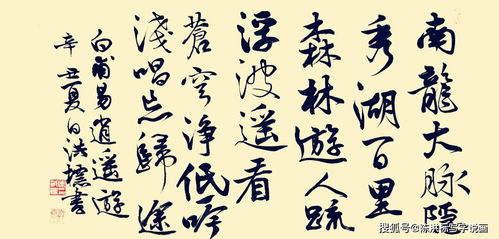 南龍大脉
秀湖百里
森林遊人疏
浮波遥看
蒼穹净低吟
淺唱忘歸途
白甫易逍遥遊
辛丑夏日洪標書
搜狐号@陈洪标写字说画